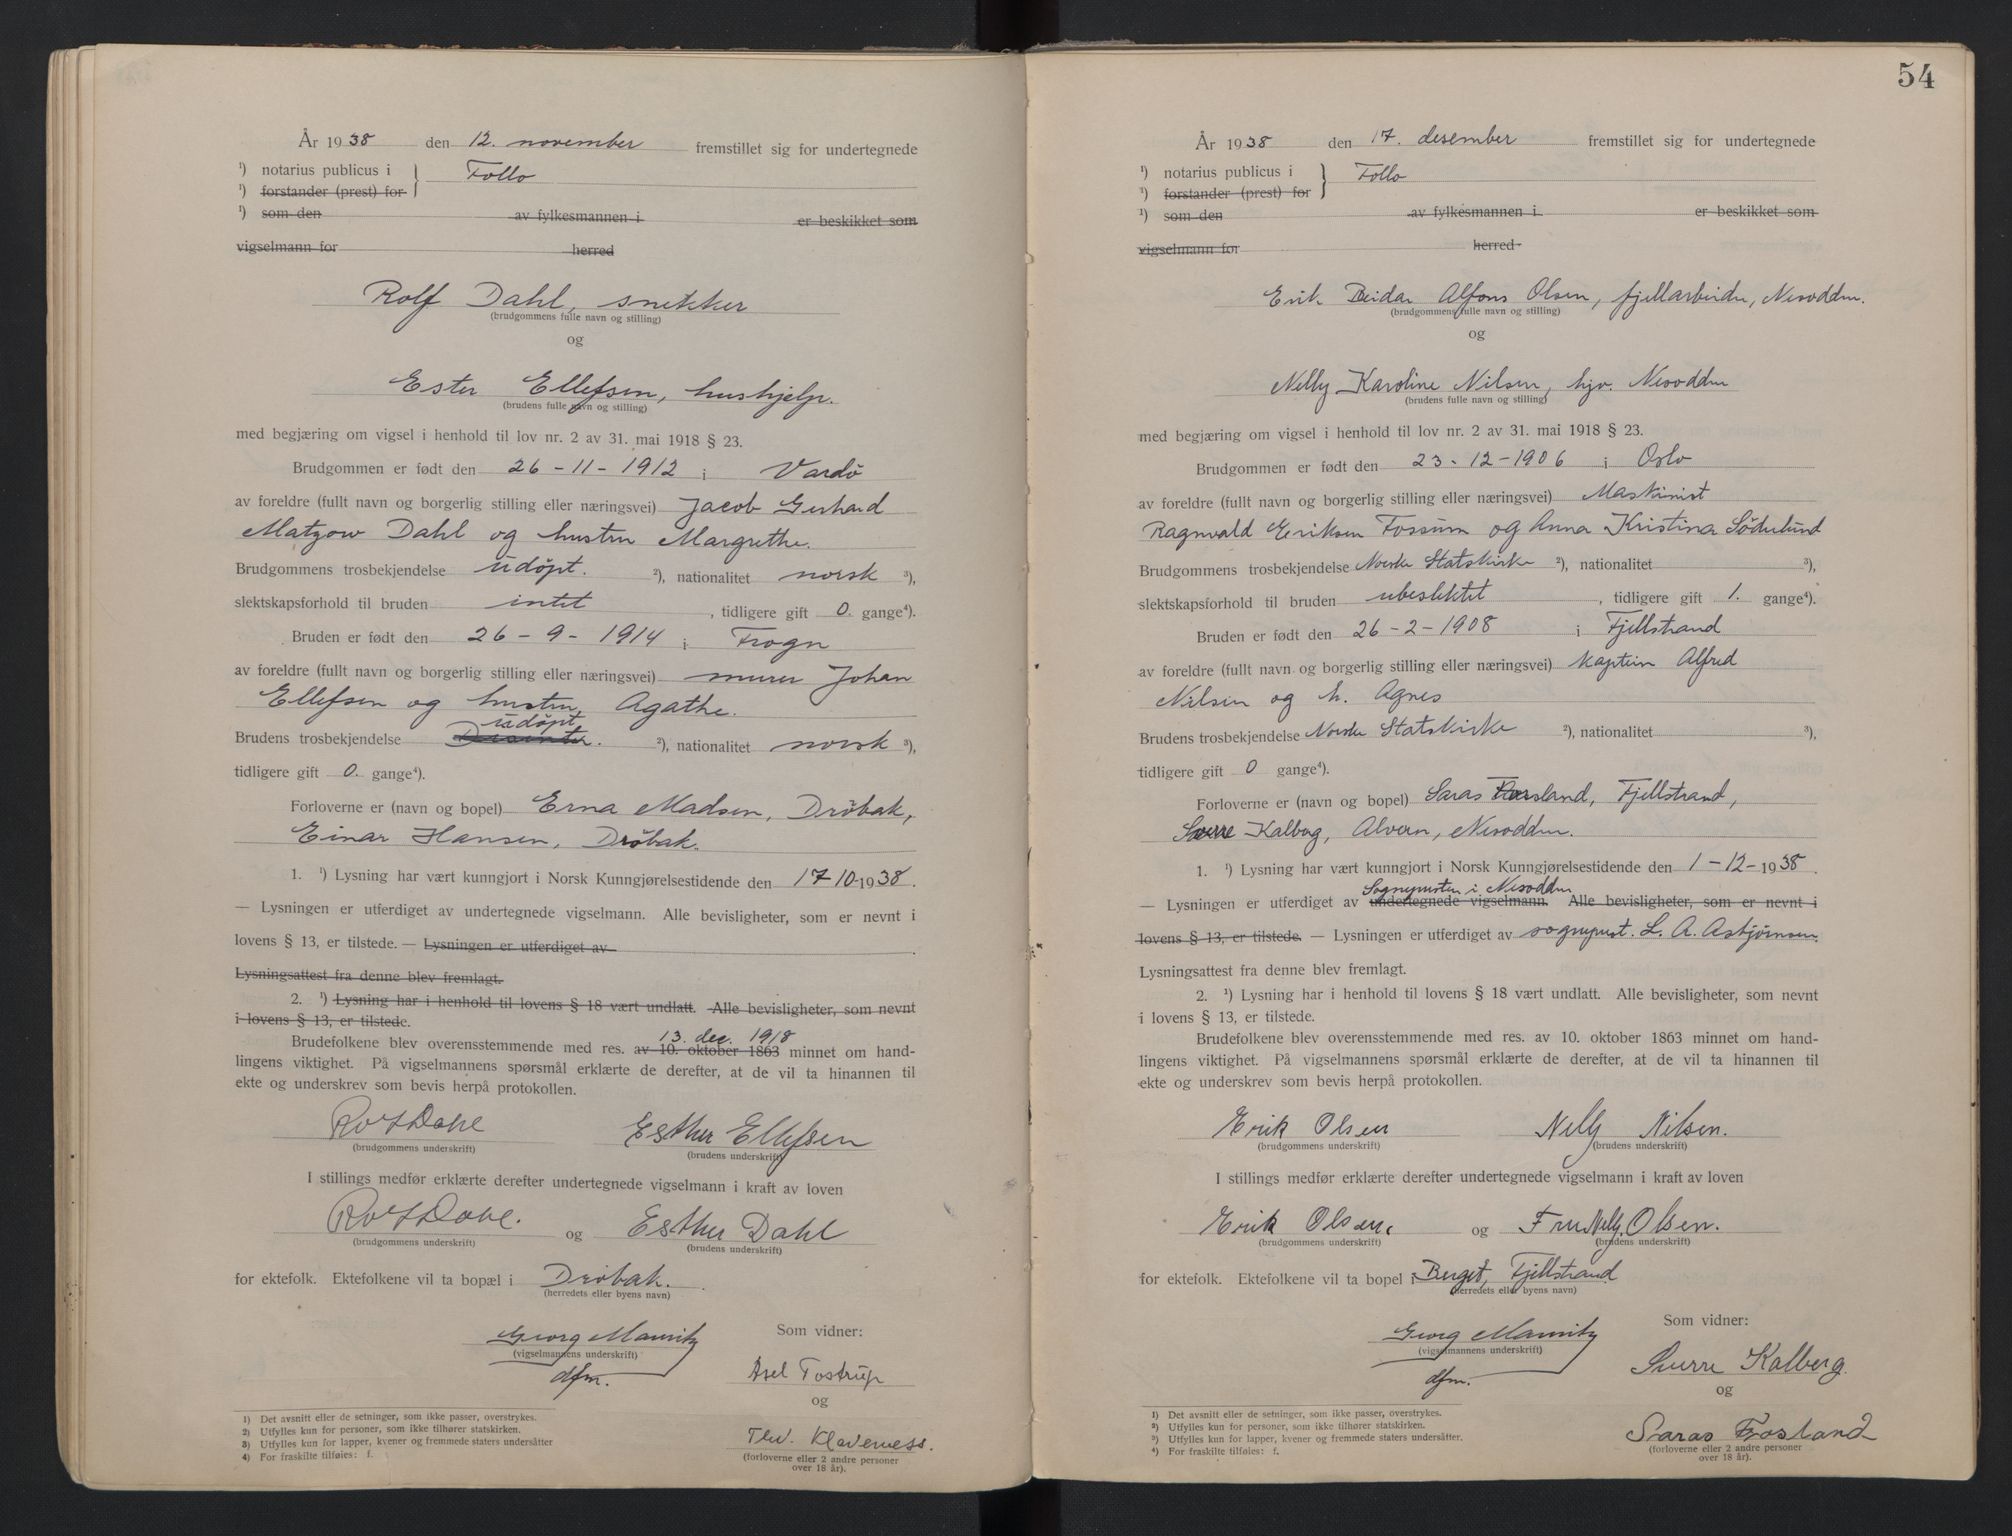 År 1938 den 12. november fremstillet sig for undertegnede
¹) notarius publicus i } Follo
¹) forstander (prest) for
¹) som den av fylkesmannen i er beskikket som
vigselmann for herred
Rolf Dahl, snekker
(brudgommens fulle navn og stilling)
og
Ester Ellefsen, hushjelp.
(brudens fulle navn og stilling)
med begjæring om vigsel i henhold til lov nr. 2 av 31. mai 1918 § 23.
Brudgommen er født den 26-11-1912 i Vardö
av foreldre (fullt navn og borgerlig stilling eller næringsvei) Jacob Gerhard
Matzow Dahl og hustru Margrethe.
Brudgommens trosbekjendelse udöpt. ²), nationalitet norsk ³),
slektskapsforhold til bruden intet, tidligere gift 0. gange⁴).
Bruden er født den 26-9-1914 i Frogn
av foreldre (fullt navn og borgerlig stilling eller næringsvei) murer Johan
Ellefsen og hustru, Agathe.
udöpt
Brudens trosbekjendelse Disenter. ²), nationalitet norsk ³),
tidligere gift 0. gange⁴).
Forloverne er (navn og bopel) Erna Madsen, Dröbak,
Einar Hansen, Dröbak.
1. ¹) Lysning har vært kunngjort i Norsk Kunngjørelsestidende den 17-10-1938.
— Lysningen er utferdiget av undertegnede vigselmann. Alle bevisligheter, som er nevnt i
lovens § 13, er tilstede. — Lysningen er utferdiget av .
Lysningsattest fra denne blev fremlagt.
2. ¹) Lysning har i henhold til lovens § 18 vært undlatt. Alle bevisligheter, som nevnt
i lovens § 13, er tilstede.
13. dec. 1918
Brudefolkene blev overensstemmende med res. av 10. oktober 1863 minnet om hand-
lingens viktighet. På vigselmannens spørsmål erklærte de derefter, at de vil ta hinannen til
ekte og underskrev som bevis herpå protokollen.
Rolf Dahl Esther Ellefsen
(brudgommens underskrift) (brudens underskrift)
I stillings medfør erklærte derefter undertegnede vigselmann i kraft av loven
Rolf Dahl. og Esther Dahl
(brudgommens underskrift) (brudens underskrift)
for ektefolk. Ektefolkene vil ta bopæl i Dröbak.
(herredets eller byens navn)
Georg Mauritz Som vidner:
(vigselmannens underskrift)
dfm. Axel Tostrup
og
Thv. Klaveness.
(forloverne eller 2 andre personer
over 18 år).
1) Det avsnitt eller de setninger, som ikke passer, overstrykes.
2) Utfylles kun for personer, som ikke tilhører statskirken.
3) Utfylles kun for lapper, kvener og fremmede staters undersåtter
4) For fraskilte tilføies: f.
54
År 1938 den 17. desember fremstillet sig for undertegnede
¹) notarius publicus i } Follo
¹) forstander (prest) for
¹) som den av fylkesmannen i er beskikket som
vigselmann for herred
Erik Reidar Alfons Olsen, fjellarbeider, Nesodden.
(brudgommens fulle navn og stilling)
og
Nelly Karoline Nilsen, hjv. Nesodden
(brudens fulle navn og stilling)
med begjæring om vigsel i henhold til lov nr. 2 av 31. mai 1918 § 23.
Brudgommen er født den 23-12-1906 i Oslo
av foreldre (fullt navn og borgerlig stilling eller næringsvei) Maskinist
Ragnvald Eriksen Fossum og Anna Kristina Söderlund
Brudgommens trosbekjendelse Norske Statskirke ²), nationalitet ³),
slektskapsforhold til bruden ubeslektet, tidligere gift 1. gange⁴).
Bruden er født den 26-2-1908 i Fjellstrand
av foreldre (fullt navn og borgerlig stilling eller næringsvei) Kaptein Alfred
Nilsen og h. Agnes
Brudens trosbekjendelse Norske Statskirke ²), nationalitet ³),
tidligere gift 0 gange⁴).
Forloverne er (navn og bopel) Saras Frosland, Fjellstrand,
Sverre Kalberg, Alvern, Nesodden.
1. ¹) Lysning har vært kunngjort i Norsk Kunngjørelsestidende den 1-12-1938.
Sognepresten i Nesodden
— Lysningen er utferdiget av undertegnede vigselmann. Alle bevisligheter, som er nevnt i
lovens § 13, er tilstede. — Lysningen er utferdiget av sogneprest. L. A. Asbjørnsen.
Lysningsattest fra denne blev fremlagt.
2. ¹) Lysning har i henhold til lovens § 18 vært undlatt. Alle bevisligheter, som nevnt
i lovens § 13, er tilstede.
Brudefolkene blev overensstemmende med res. av 10. oktober 1863 minnet om hand-
lingens viktighet. På vigselmannens spørsmål erklærte de derefter, at de vil ta hinannen til
ekte og underskrev som bevis herpå protokollen.
Erik Olsen Nelly Nilsen.
(brudgommens underskrift) (brudens underskrift)
I stillings medfør erklærte derefter undertegnede vigselmann i kraft av loven
Erik Olsen. og Fru Nelly Olsen.
(brudgommens underskrift) (brudens underskrift)
for ektefolk. Ektefolkene vil ta bopel i Berget, Fjellstrand
(herredets eller byens navn)
Georg Mauritz Som vidner:
(vigselmannens underskrift)
dfm. Sverre Kalberg.
og
Saras Frosland
(forloverne eller 2 andre personer
over 18 år).
1) Det avsnitt eller de setninger, som ikke passer, overstrykes.
2) Utfylles kun for personer, som ikke tilhører statskirken.
3) Utfylles kun for lapper, kvener og fremmede staters undersåtter.
4) For fraskilte tilføies: f.